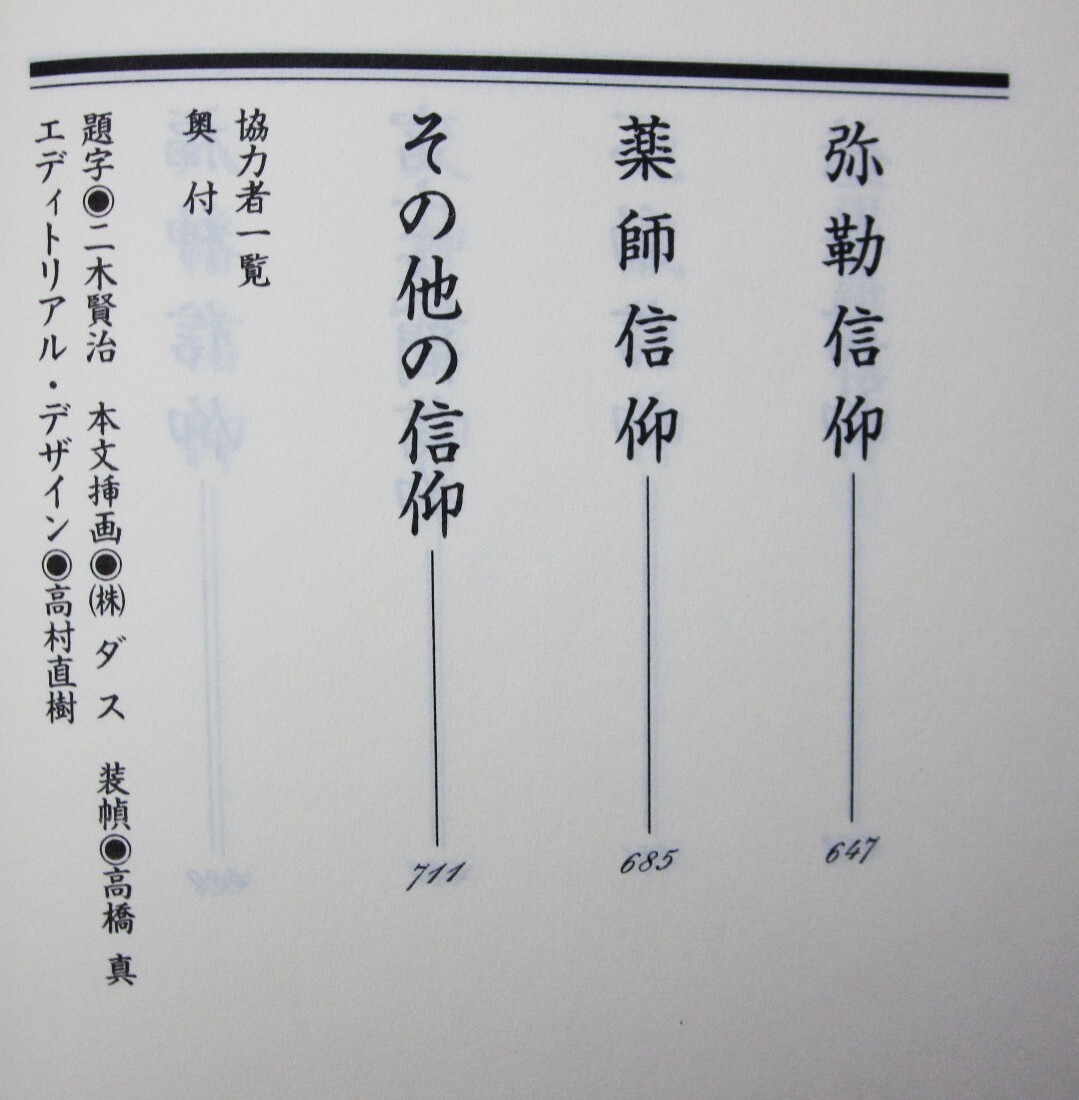 弥勒信仰 647
薬師信仰 685
その他の信仰 711
協力者一覧
奥付
題字◉二木賢治 本文挿画◉㈱ダス 装幀◉高橋真
エディトリアル・デザイン◉高村直樹